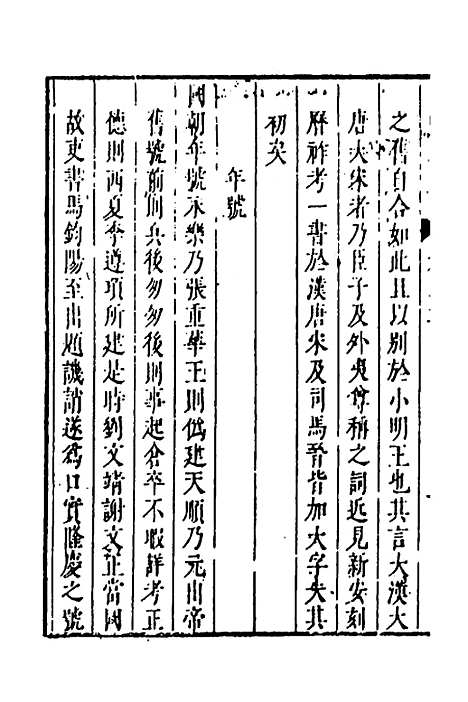 之舊自合如此且以別於小明王也其言大漢大
唐大宋者乃臣子及外夷尊稱之詞近見新安刻
歷祚考一書於漢唐宋及司馬晉皆加大字失其
初矣
年號
國朝年號永樂乃張重華王則僞建天順乃元出帝
舊號前則兵後匆匆後則事起倉卒不暇詳考正
德則西夏李遵頊所建是時劉文靖謝文正當國
故吏書馬鈞陽至出題譏誚遂爲口實隆慶之號